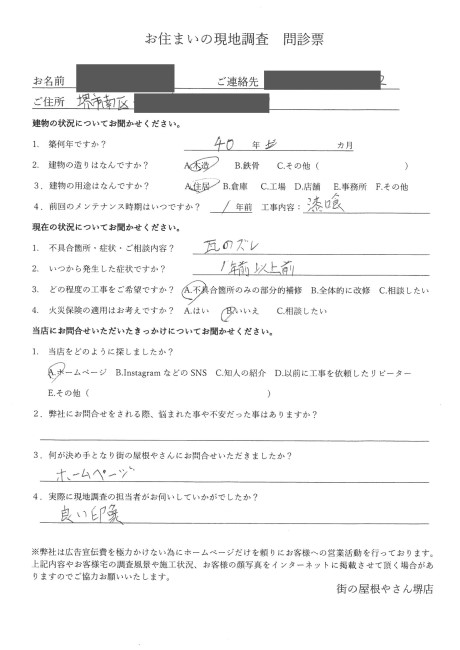 お住まいの現地調査　問診票
お名前　ご連絡先
ご住所　堺市南区
建物の状況についてお聞かせください。
1. 築何年ですか？　40 年 ヵ月
2. 建物の造りはなんですか？　A.木造　B.鉄骨　C.その他（　）
3. 建物の用途はなんですか？　A.住居　B.倉庫　C.工場　D.店舗　E.事務所　F.その他
4. 前回のメンテナンス時期はいつですか？　1 年前　工事内容：漆喰
現在の状況についてお聞かせください。
1. 不具合箇所・症状・ご相談内容？　瓦のズレ
2. いつから発生した症状ですか？　1年前以上前
3. どの程度の工事をご希望ですか？　A.不具合箇所のみの部分的補修　B.全体的に改修　C.相談したい
4. 火災保険の適用はお考えですか？　A.はい　B.いいえ　C.相談したい
当店にお問合せいただいたきっかけについてお聞かせください。
1. 当店をどのように探しましたか？
A.ホームページ　B.InstagramなどのSNS　C.知人の紹介　D.以前に工事を依頼したリピーター
E.その他（　）
2．弊社にお問合せをされる際、悩まれた事や不安だった事はありますか？
3．何が決め手となり街の屋根やさんにお問合せいただきましたか？
ホームページ
4．実際に現地調査の担当者がお伺いしていかがでしたか？
良い印象
※弊社は広告宣伝費を極力かけない為にホームページだけを頼りにお客様への営業活動を行っております。
上記内容やお客様宅の調査風景や施工状況、お客様の顔写真をインターネットに掲載させて頂く場合があ
りますのでご協力お願いいたします。
街の屋根やさん堺店